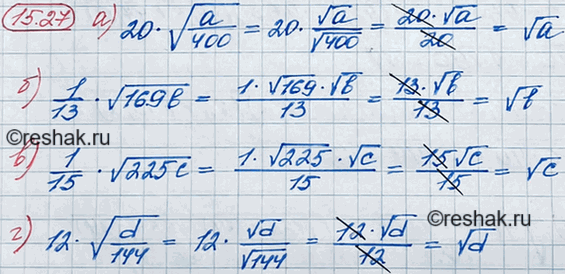 15.27 а) 20 · √(a/400) = 20 · √a/√400 = 20 · √a/20 = √a
б) 1/13 · √169b = 1 · √169 · √b/13 = 13 · √b/13 = √b
в) 1/15 · √225c = 1 · √225 · √c/15 = 15√c/15 = √c
©reshak.ru
г) 12 · √(d/144) = 12 · √d/√144 = 12 · √d/12 = √d
©reshak.ru